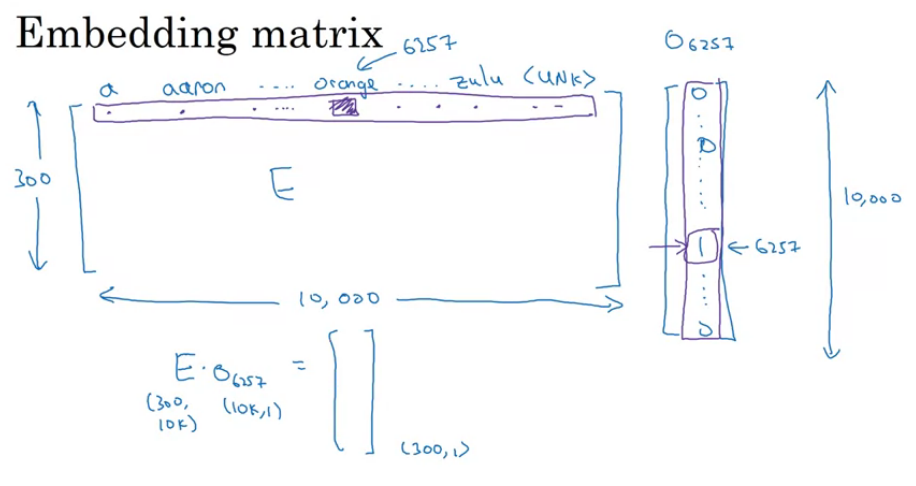 Embedding matrix
6257
O6257
a aaron .... orange .... zulu <UNK>
300
E
0
0
1
6257
0
10,000
10,000
E · O6257 =
(300, 10K)
(10K, 1)
(300, 1)